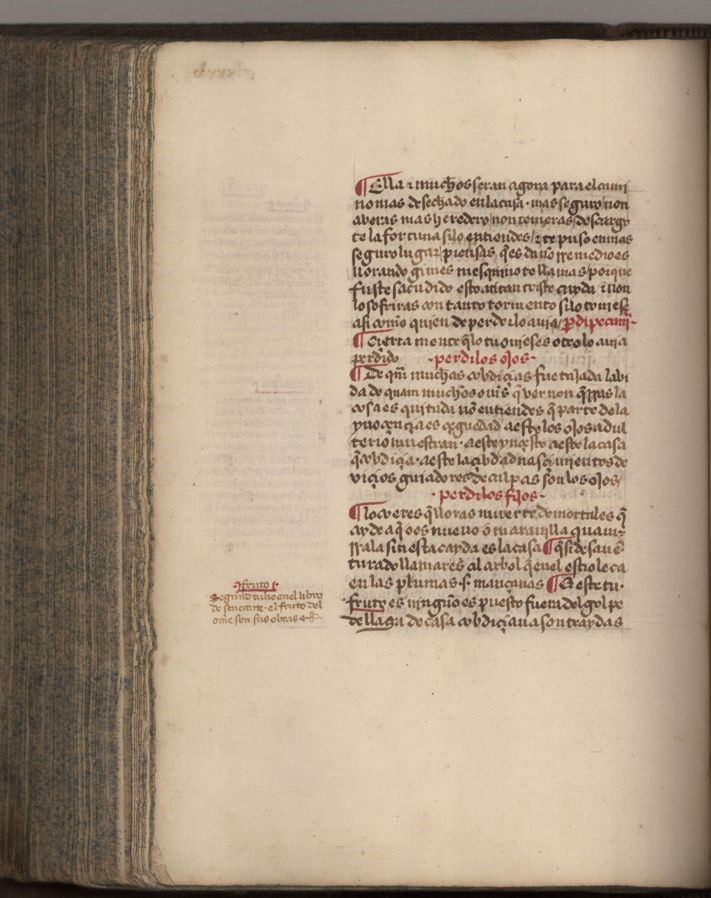 ¶ Ella ⁊ muchos seran agora para el cami
no mas desechado en la casa · mas seguro / non
aberas mas heredero / non temeras / descargo
te la fortuna si lo entiendes / ⁊ te puso en mas
seguro lugar / piensas q̃ es daño rremedio es
llorando gimes mesquino te llamas / porque
fuste sacudido esto cayda ⁊ non
lo sofriras con tanto tormento si lo touiesẽ
asi como quien de perder lo auia / perdi pecuni
¶ Cierta mente q̃ lo tu ouieses otro lo auia
perdido · perdi los ojos ·
¶ De quãtas muchas cobdiçias fue tajada la bi
da de quan muchos q̃ ver non q̃rras la
cosa es quitada nõ entiendes q̃ parte de la
ynoçençia es çeguedad a este los ojos adul
terio muestran · a este ynçesto a este la casa
q̃ cobdiçia · a este la çibdad nasçimientos de
viçios guiadores de culpas son los ojos /
· perdi los fijos ·
¶ loco eres q̃ lloras muerte de mortales q̃
arde a q̃ o es nueuo o marauilla quam
rrala sin esta cayda es la casa ¶ q̃ si desauẽ
turado llamares al arbol q̃ en el estiole ca
en las plumas · s · mançanas ¶ E este tu ·
fruto es ninguño es puesto fuera del golpe
de llaga de casa cobdiçiaua son traydas
fruto s
Segund tulio en el libro
de senetute · el fruto del
ome son sus obras